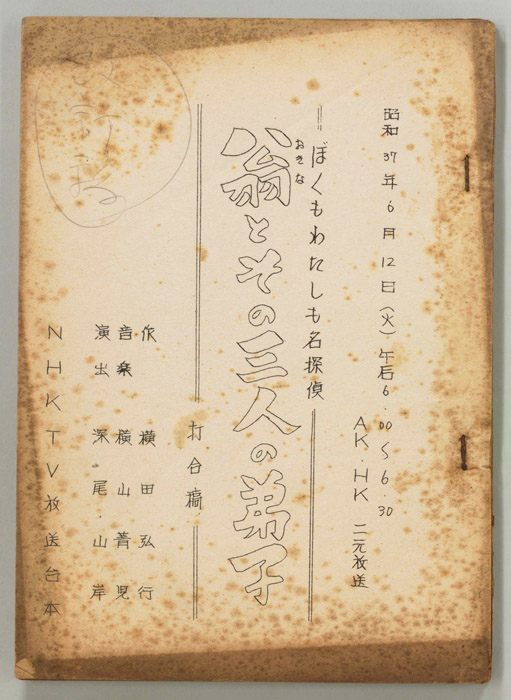 昭和37年6月12日(火)午后6.00〜6.30
AK.HK 二元放送
ぼくもわたしも名探偵
翁とその三人の弟子
おきな
打合稿
作 横田弘行
音楽 横山菁児
演出 深尾・山岸
NHKTV放送台本